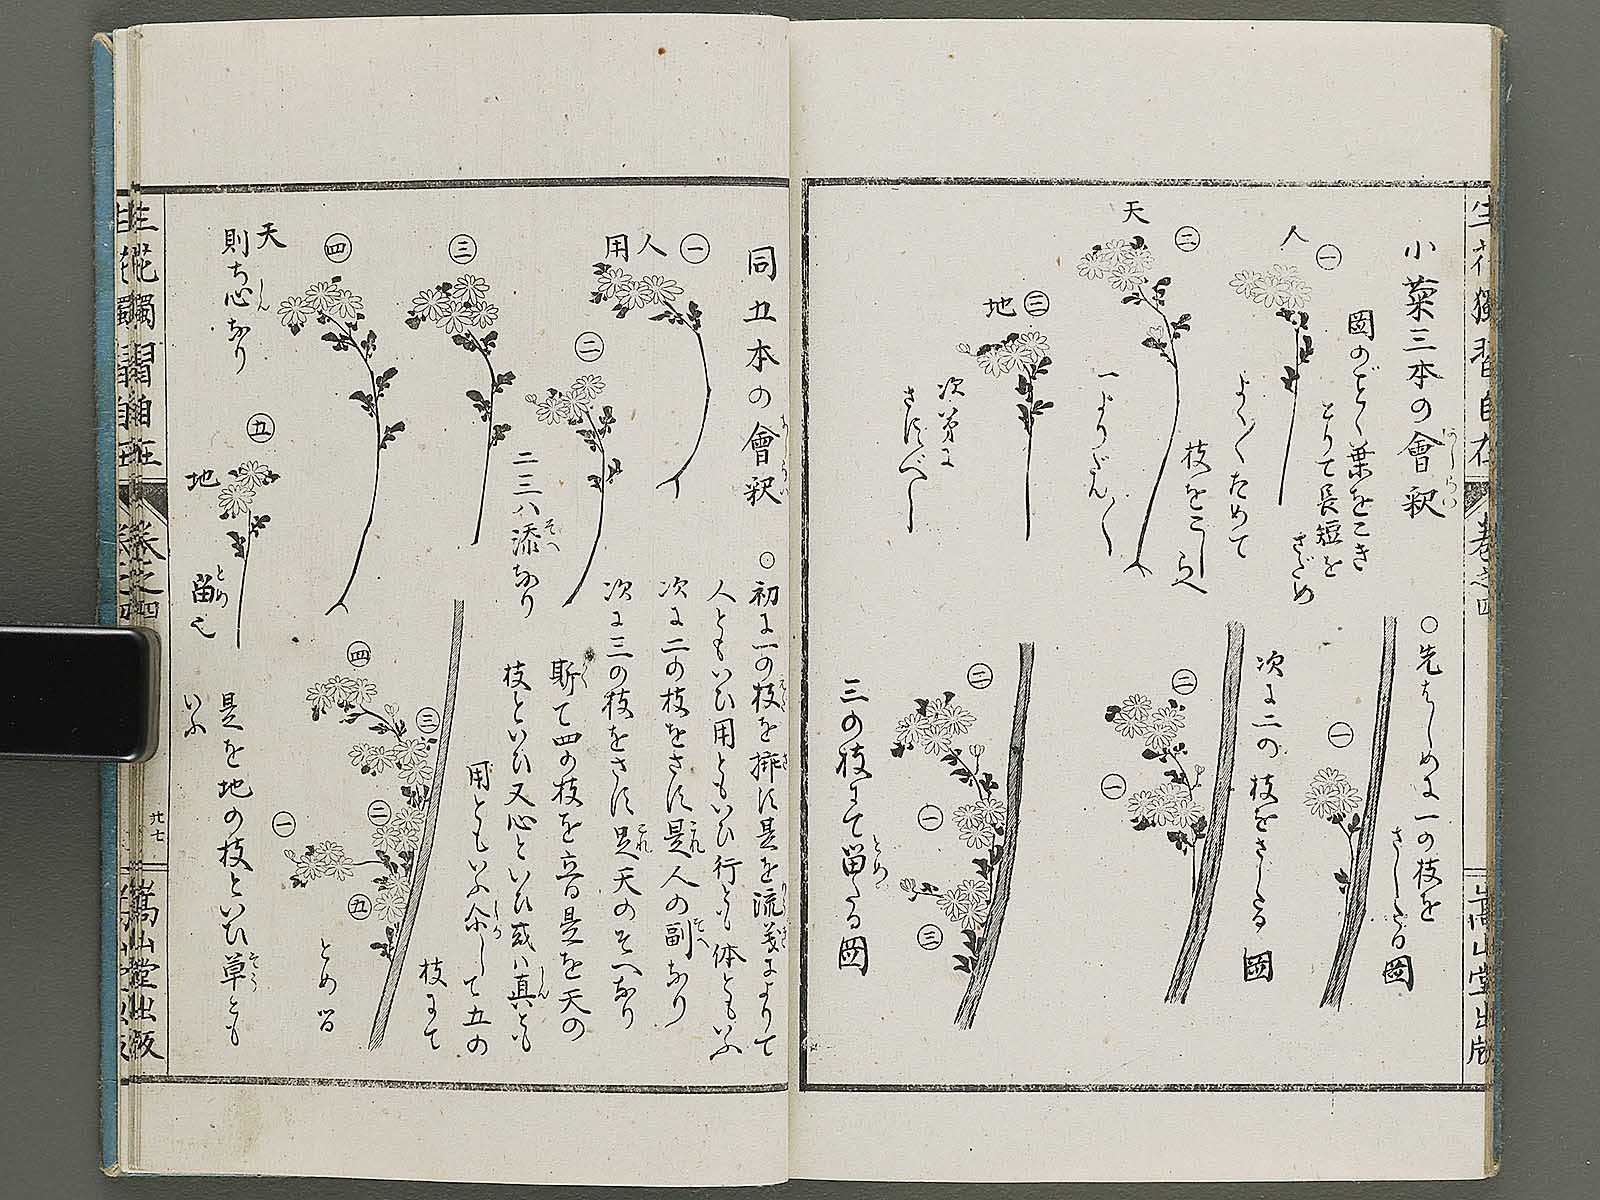 小菊三本の會釈
圖のごとく葉をこき
とりて長短をさだめ
よく〳〵ためて
枝をこしらへ
一よりだん〳〵
次第に
さすべし
人
㊀
天
㊁
地
㊂
○先はじめに一の枝を
さしたる圖
㊀
次に二の枝をさしたる圖
㊁
㊀
三の枝にて留たる圖
㊁
㊀
㊂
生花獨習自在
卷之四
嵩山堂出版
同五本の會釈
㊀
人
用
㊁
㊂
㊃
天
則ち心なり
㊄
地
留也
二三ハ添なり
○初に一の枝を挿す是を流義によりて
人ともいひ用ともいひ行とも体ともいふ
次に二の枝をさす是人の副なり
次に三の枝をさす是天のそへなり
斯て四の枝を立る是を天の
枝といひ又心といひ或ハ真とも
用ともいふ尒して五の
枝にて
とめる
是を地の枝といひ草とも
いふ
㊃
㊂
㊁
㊀
㊄
生花獨習自在
卷之四
廿七
嵩山堂出版